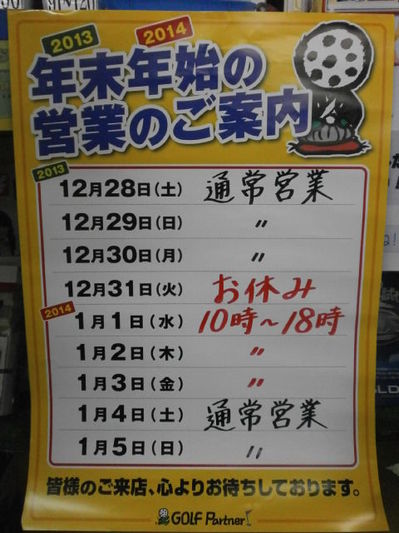 2013 2014
年末年始の
営業のご案内
2013
12月28日(土) 通常営業
12月29日(日) 〃
12月30日(月) 〃
12月31日(火) お休み
2014
1月1日(水) 10時~18時
1月2日(木) 〃
1月3日(金) 〃
1月4日(土) 通常営業
1月5日(日) 〃
皆様のご来店、心よりお待ちしております。
GOLF Partner